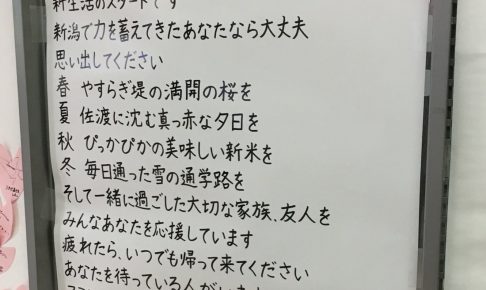 新生活のスタートです
新潟で力を蓄えてきたあなたなら大丈夫
思い出してください
春 やすらぎ堤の満開の桜を
夏 佐渡に沈む真っ赤な夕日を
秋 ぴっかぴかの美味しい新米を
冬 毎日通った雪の通学路を
そして一緒に過ごした大切な家族、友人を
みんなあなたを応援しています
疲れたら、いつでも帰って来てください
あなたを待っている人がいます